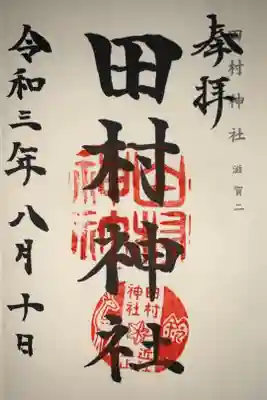 奉拝
田村神社 滋賀二
田村神社
田村
神社
令和三年八月十日